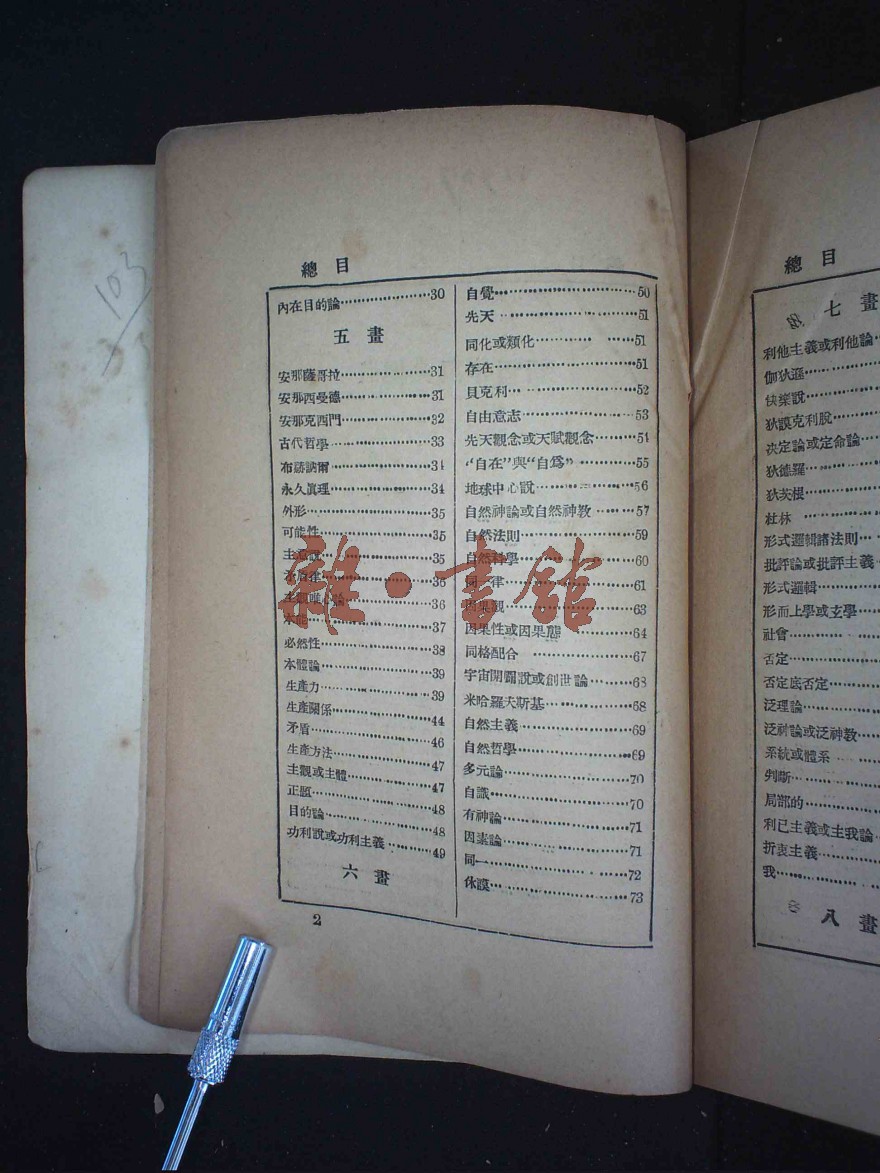 103
總目
內在目的論 30
五畫
安那薩哥拉 31
安那西曼德 31
安那克西門 32
古代哲學 33
布赫訥爾 34
永久眞理 34
外形 35
可能性 35
主意說 35
矛盾律 36
主觀唯心論 36
本能 37
必然性 38
本體論 39
生產力 39
生產關係 44
矛盾 46
生產方法 47
主觀或主體 47
正題 48
目的論 48
功利說或功利主義 49
六畫
自覺 50
先天 51
同化或類化 51
存在 51
貝克利 52
自由意志 53
先天觀念或天賦觀念 54
“自在”與“自爲” 55
地球中心說 56
自然神論或自然神敎 57
自然法則 59
自然科學 60
同一律 61
因果觀 63
因果性或因果態 64
同格配合 67
宇宙開闢說或創世論 68
米哈羅夫斯基 68
自然主義 69
自然哲學 69
多元論 70
自識 70
有神論 71
因素論 71
同一 72
休謨 73
2
總目
七畫
利他主義或利他論
伽狄遜
快樂說
狄謨克利脫
決定論或定命論
狄德羅
狄茨根
杜林
形式邏輯諸法則
批評論或批評主義
形式邏輯
形而上學或玄學
社會
否定
否定底否定
泛理論
泛神論或泛神敎
系統或體系
判斷
局部的
利己主義或主我論
折衷主義
我
八畫
雜·書館